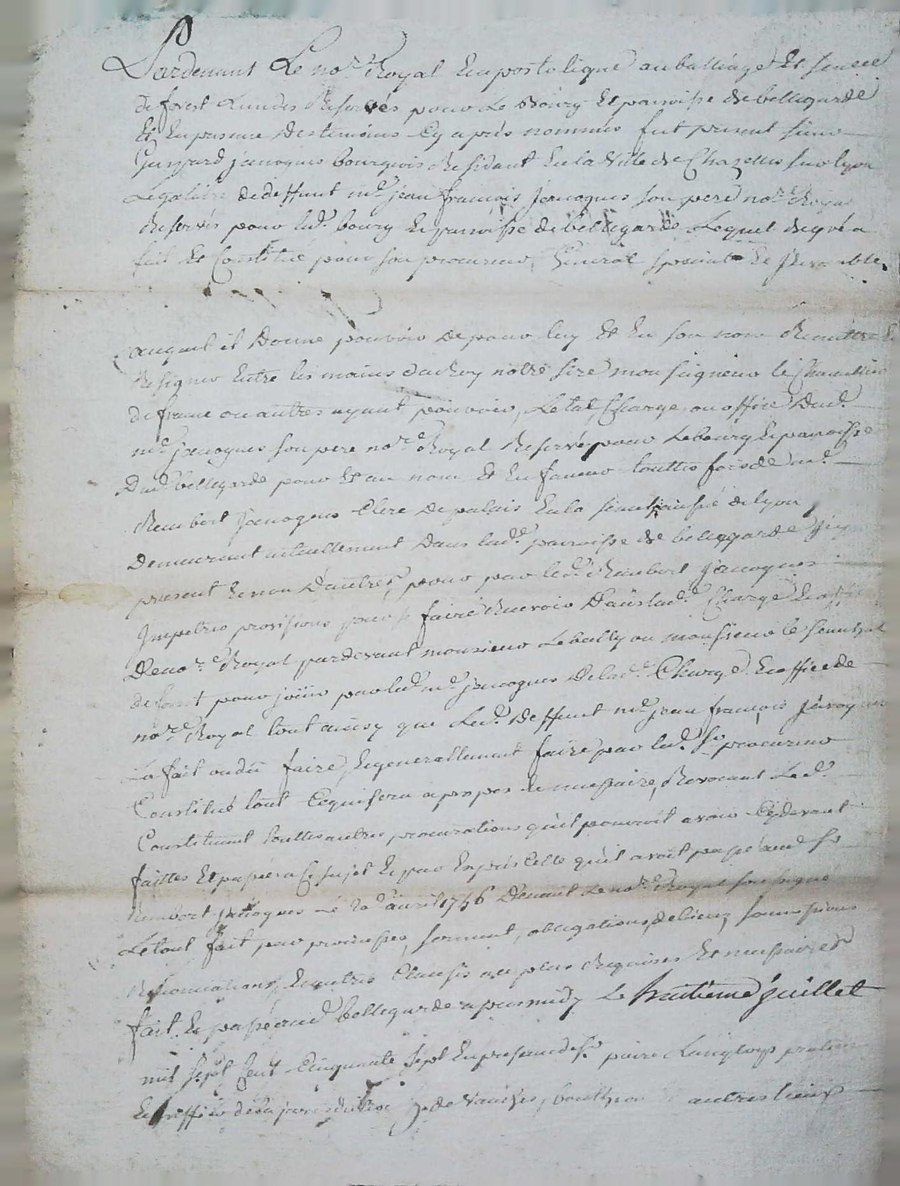 Pardevant Le no.re Royal Et apostolique au bailliage Et senee
de forest L'un des Reservés pour Le Bourg Et paroisse de bellegarde
Et En presence Des temoins Cy aprés nommés fut present sieur
jacoques bourgeois Residant En la Ville de Chazelles sur lyon
de deffunt m.e jean françois jacoques son pere no.re Royal
Reservés pour lad. bourg Et paroisse de bellegarde Lequel de gré a
fait Et Constitué pour son procureur General special Et
auquel il Donne pouvoir de pour luy Et En son nom Remettre Et
Resigner Entre les mains du Roy notre sire monseigneur le Chancellier
de france ou autres ayant pouvoir, Letat, Charge ou office Dud.
m.e jacoques son pere no.re Royal Reservé pour Le bourg Et paroisse
Dud. bellegarde pour Et au nom Et En faveur touttes fois de m.e
Rembert jacoques Clerc De palais En la senechaussée de lyon
Demeurant actuellement Dans lad. paroisse de bellegarde
present Et non D'autres, pour par led. Rembert jacoques
Impetrer provisions pour se faire Recevoir Dans lad. Charge Et office
De no.re Royal pardevant monsieur Le bailly ou monsieur le senechal
de forest pour joüir par led. m.e jacoques De lad. Charge Et office de
no.re Royal tout ainsy que Led. Deffunt m.e jean françois jacoques
La fait ou dû faire, Et generallement faire par led. S.r procureur
Constitué tout Ce qui sera a propos Et necessaire, Revocant Led.
Constituant touttes autres procurations qu'il pourroit avoir Cy devant
faittes Et passées a Ce sujet Et par Exprès Celle qu'il avoit passé aud. S.r
Rembert jacoques Le avril 1756 Devant Le no.re Royal soussigné
Le tout fait par promesses, serment, obligations De biens, soumissions
Renonciations, Et autres Clauses au plus Requises Et necessaires
fait Et passé aud. bellegarde apres midy Le huitieme juillet
mil sept Cent Cinquante sept En presence de S.r
Et greffier de la jurisdiction de Et autres Lieux